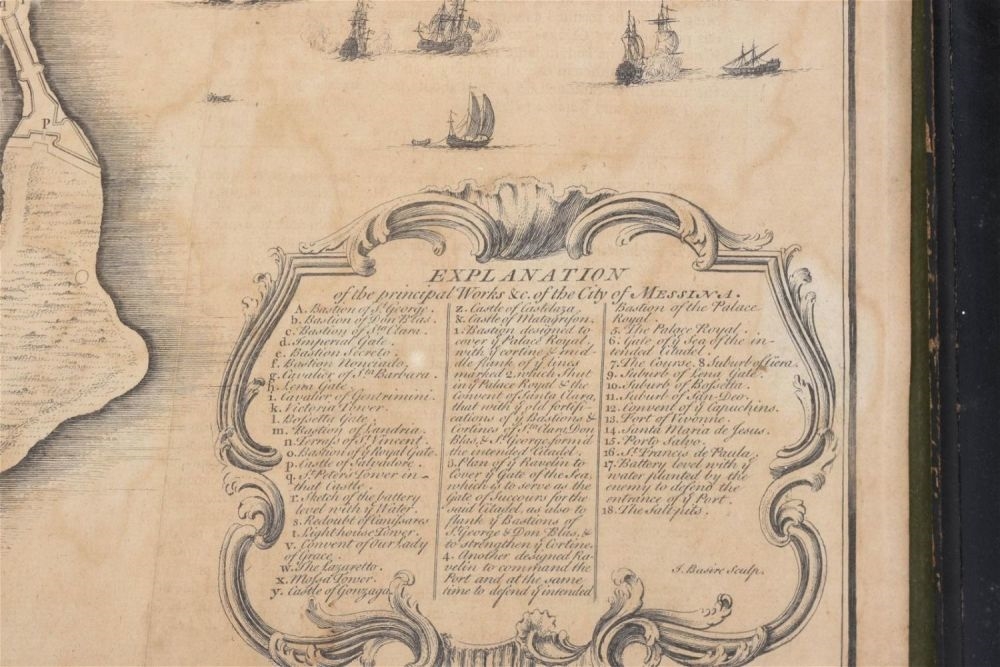 P
EXPLANATION
of the principal Works &c. of the City of MESSINA.
A. Bastion of St. George.
b. Bastion of Don Blas.
c. Bastion of Sta. Clara.
d. Imperial Gate.
e. Bastion Secreto.
f. Bastion Nonciado.
g. Cavalier of Sta. Barbara.
h. Lena Gate.
i. Cavalier of Gentrimini.
k. Victoria Tower.
l. Bossetta Gate.
m. Bastion of Landria.
n. Terrass of St. Vincent.
o. Bastion of ye Royal Gate.
p. Castle of Salvadore.
q. St. Peters Tower in
that Castle.
r. Sketch of the battery
level with ye Water.
s. Redoubt of
t. Light-house Tower.
v. Convent of Our Lady
of Grace.
w. The Lazaretto.
x. Mossa Tower.
y. Castle of Gonzaga.
z. Castle of Castelaza.
&. Castle of Matagrifon.
1. Bastion designed to
cover ye Palace Royal,
with ye cortine & mid-
dle flank of ye line
marked 2. which shut
in ye Palace Royal & the
Convent of Santa Clara,
that with ye old fortifi-
cations of ye Bastions &
Cortines of Sta. Clara, Don
Blas, & St. George form'd
the intended Citadel.
3. Plan of ye Ravelin to
Cover ye Gate of the Sea,
which is to serve as the
Gate of Succours for the
said Citadel, as also to
flank ye Bastions of
St. George & Don Blas, &
to strengthen ye Cortine.
4. Another designed Ra-
velin to command the
Port and at the same
time to defend ye intended
Bastion of the Palace
Royal.
5. The Palace Royal.
6. Gate of ye Sea of the in-
tended Citadel.
7. The Course. 8. Suburb of Ciera.
9. Suburb of Lena Gate.
10. Suburb of Bossetta.
11. Suburb of San-Deo.
12. Convent of ye Capuchins.
13. Fort Vivonne.
14. Santa Maria de Jesus.
15. Porto Salvo.
16. St. Francis de Paula.
17. Battery level with ye
water planted by the
enemy to defend the
entrance of ye Port.
18. The Salt pits.
J. Basire Sculp.